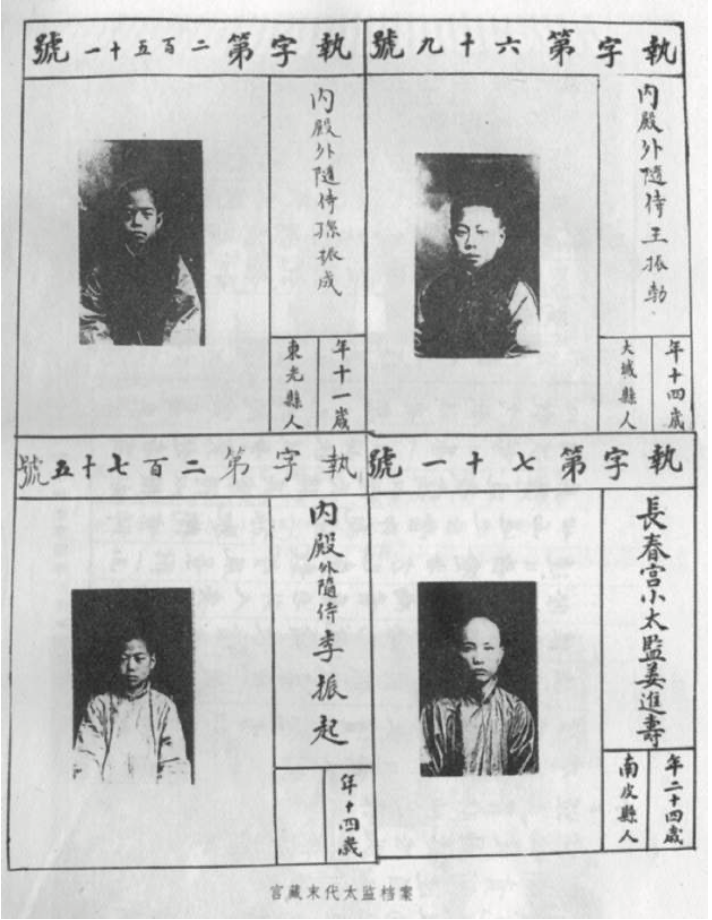 執字第六十九號
内殿外隨侍王振勃
年十四歲
大城縣人
執字第二百五十一號
内殿外隨侍孫振成
年十一歲
東光縣人
執字第七十一號
長春宮小太監姜進壽
年二十四歲
南皮縣人
執字第二百七十五號
内殿外隨侍李振起
年十四歲
宫藏末代太监档案